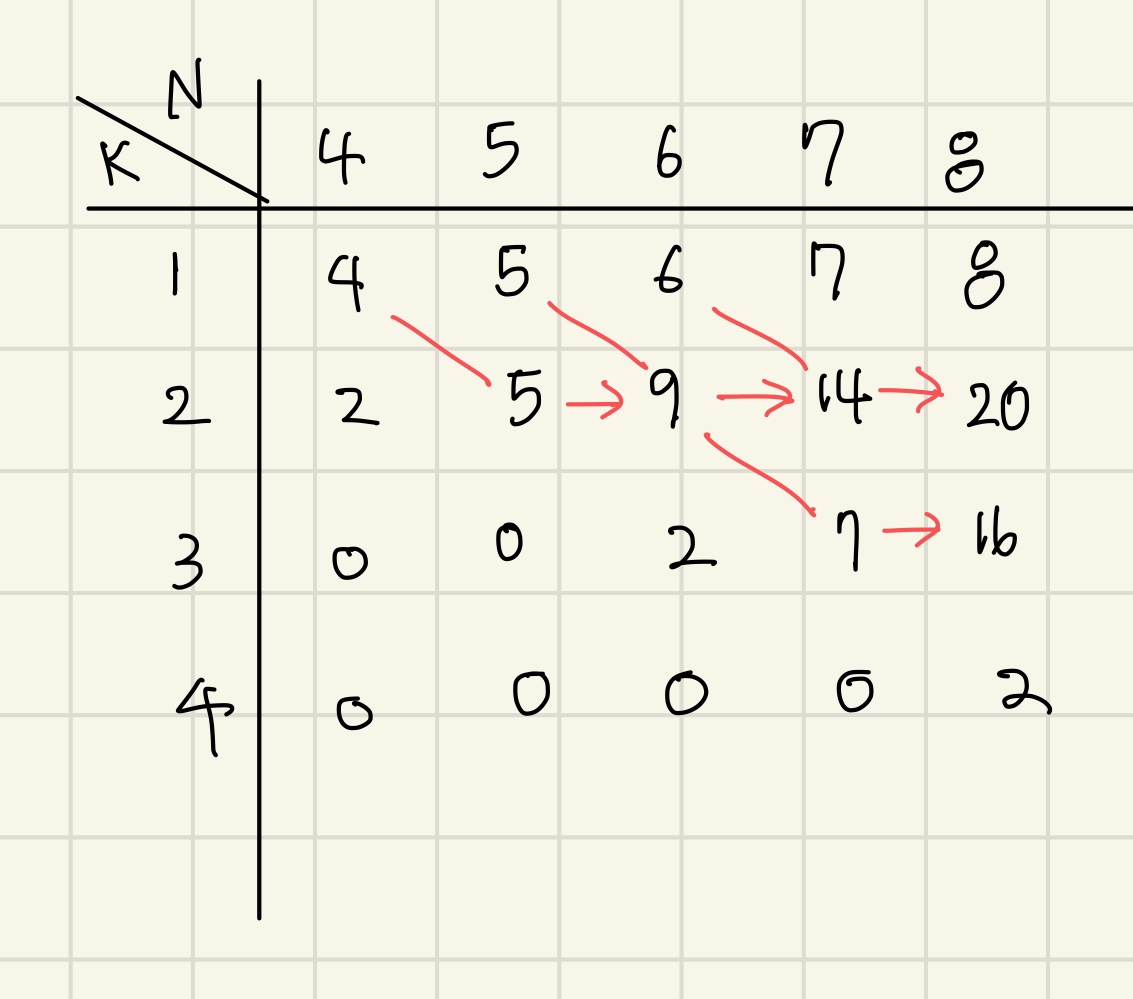 N
K 4 5 6 7 8
1 4 5 6 7 8
2 2 5 → 9 → 14 → 20
3 0 0 2 7 → 16
4 0 0 0 0 2